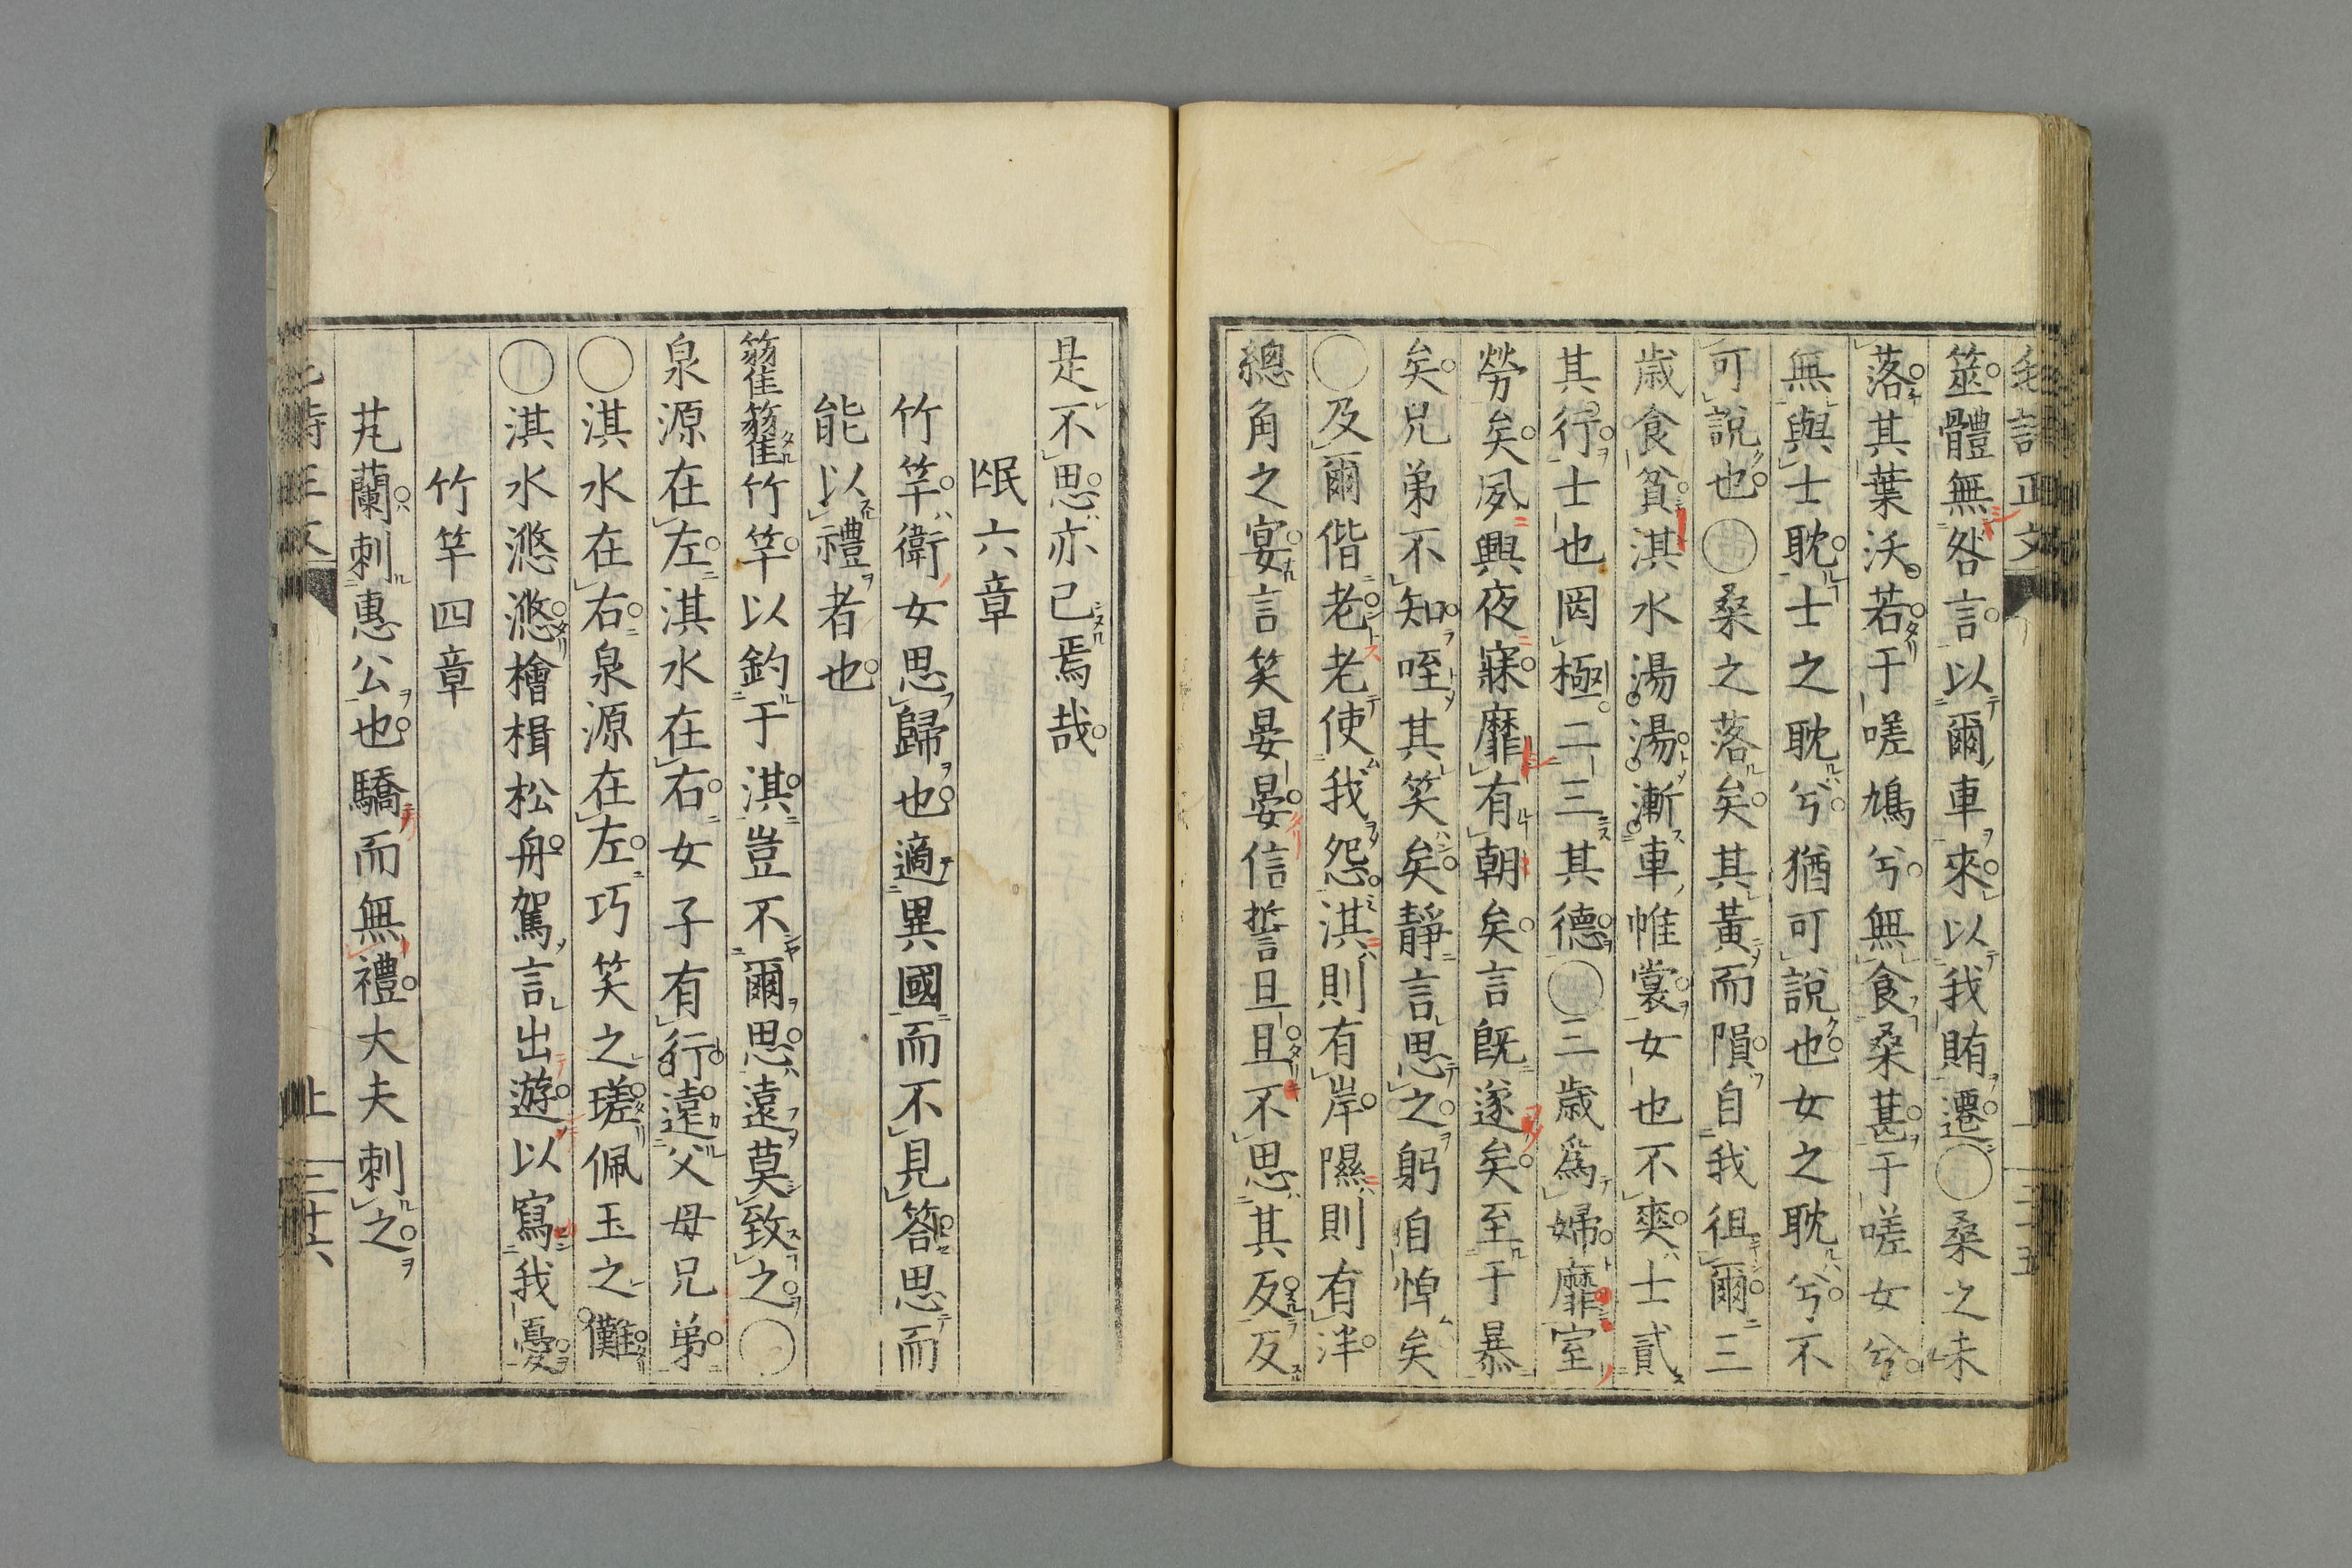 毛詩正文 上 三十五
筮體無咎言以爾車來以我賄遷○桑之未
落其葉沃若于嗟鳩兮無食桑甚于嗟女兮
無與士耽士之耽兮猶可說也女之耽兮不
可說也○桑之落矣其黃而隕自我徂爾三
歲食貧淇水湯湯漸車帷裳女也不爽士貳
其行士也罔極二三其德○三歲爲婦靡室
勞矣夙興夜寐靡有朝矣言旣遂矣至于暴
矣兄弟不知咥其笑矣靜言思之躬自悼矣
○及爾偕老老使我怨淇則有岸隰則有泮
總角之宴言笑晏晏信誓旦旦不思其反反
是不思亦已焉哉
氓六章
竹竿衛女思歸也適異國而不見答思而
能以禮者也
籊籊竹竿以釣于淇豈不爾思遠莫致之○
泉源在左淇水在右女子有行遠父母兄弟
○淇水在右泉源在左巧笑之瑳佩玉之儺
○淇水滺滺檜楫松舟駕言出遊以寫我憂
竹竿四章
芄蘭刺惠公也驕而無禮大夫刺之
毛詩正文 上 三十六